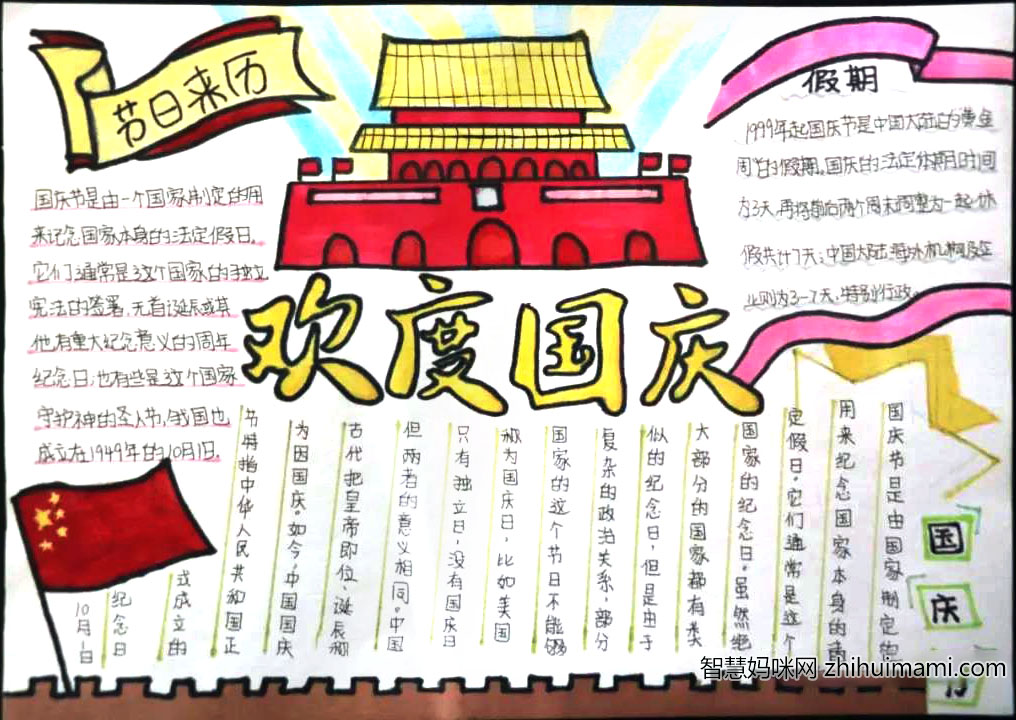 节日来历
国庆节是由一个国家制定的用
来记念国家本身的法定假日。
它们通常是这个国家的独立
宪法的签署,元首诞辰或其
他有重大纪念意义的周年
纪念日;也有些是这个国家
守护神的圣人节,我国也
成立在1949年的10月1日.
欢度国庆
假期
1999年起国庆节是中国大陆的黄金
周的假期。国庆的法定休期时间
为3天,再将前后两个周末调整为一起休
假共计7天;中国大陆海外机构及企
业则为3-7天,特别行政。
国庆节是由国家制定的
用来纪念国家本身的
定假日。它们通常是这个
国家的纪念日。虽然绝
大部分的国家都有类
似的纪念日,但是由于
复杂的政治关系,部分
国家的这个节日不能够
称为国庆日,比如美国
只有独立日,没有国庆日
但两者的意义相同。中国
古代把皇帝即位、诞辰称
为因国庆。如今,中国国庆
节特指中华人民共和国正
式成立的
纪念日
10月1日
国
庆
节
智慧妈咪网 zhihuimami.com